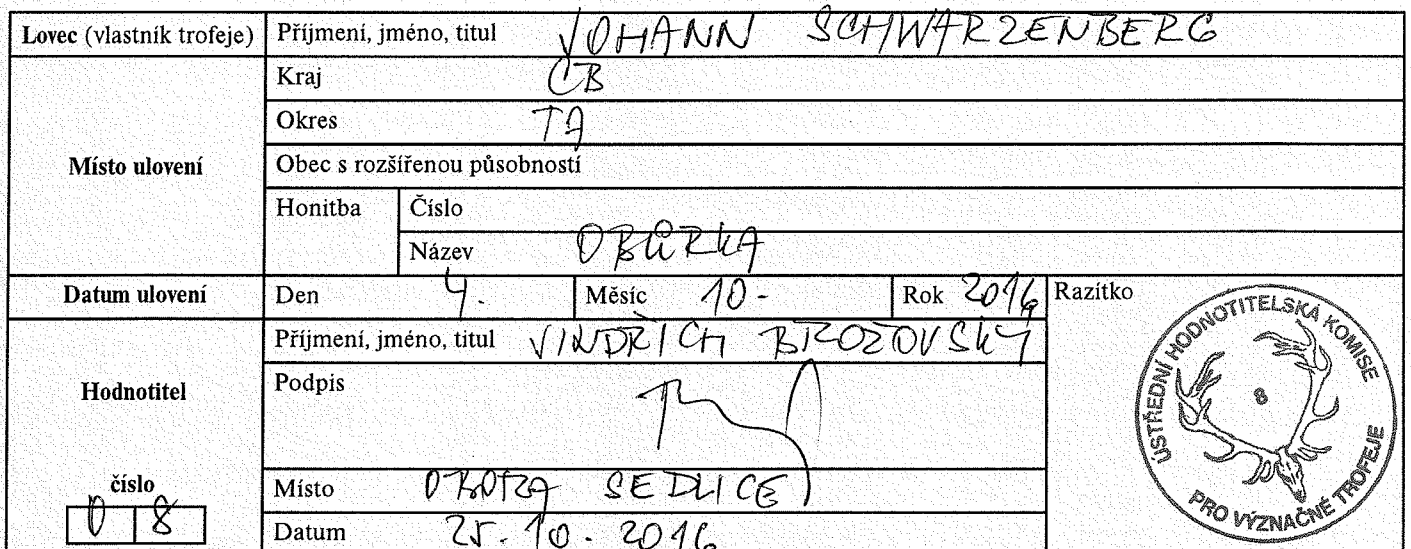 Lovec (vlastník trofeje) Příjmení, jméno, titul JOHANN SCHWARZENBERG
Místo ulovení
Kraj ČB
Okres TA
Obec s rozšířenou působností
Honitba Číslo
Název OBŮRKA
Datum ulovení Den 4. Měsíc 10. Rok 2016 Razítko
Hodnotitel
Příjmení, jméno, titul JINDŘICH BROŽOVSKÝ
Podpis
číslo
0 8
Místo OBORA SEDLICE
Datum 25. 10. 2016
ÚSTŘEDNÍ HODNOTITELSKÁ KOMISE
8
PRO VÝZNAČNÉ TROFEJE